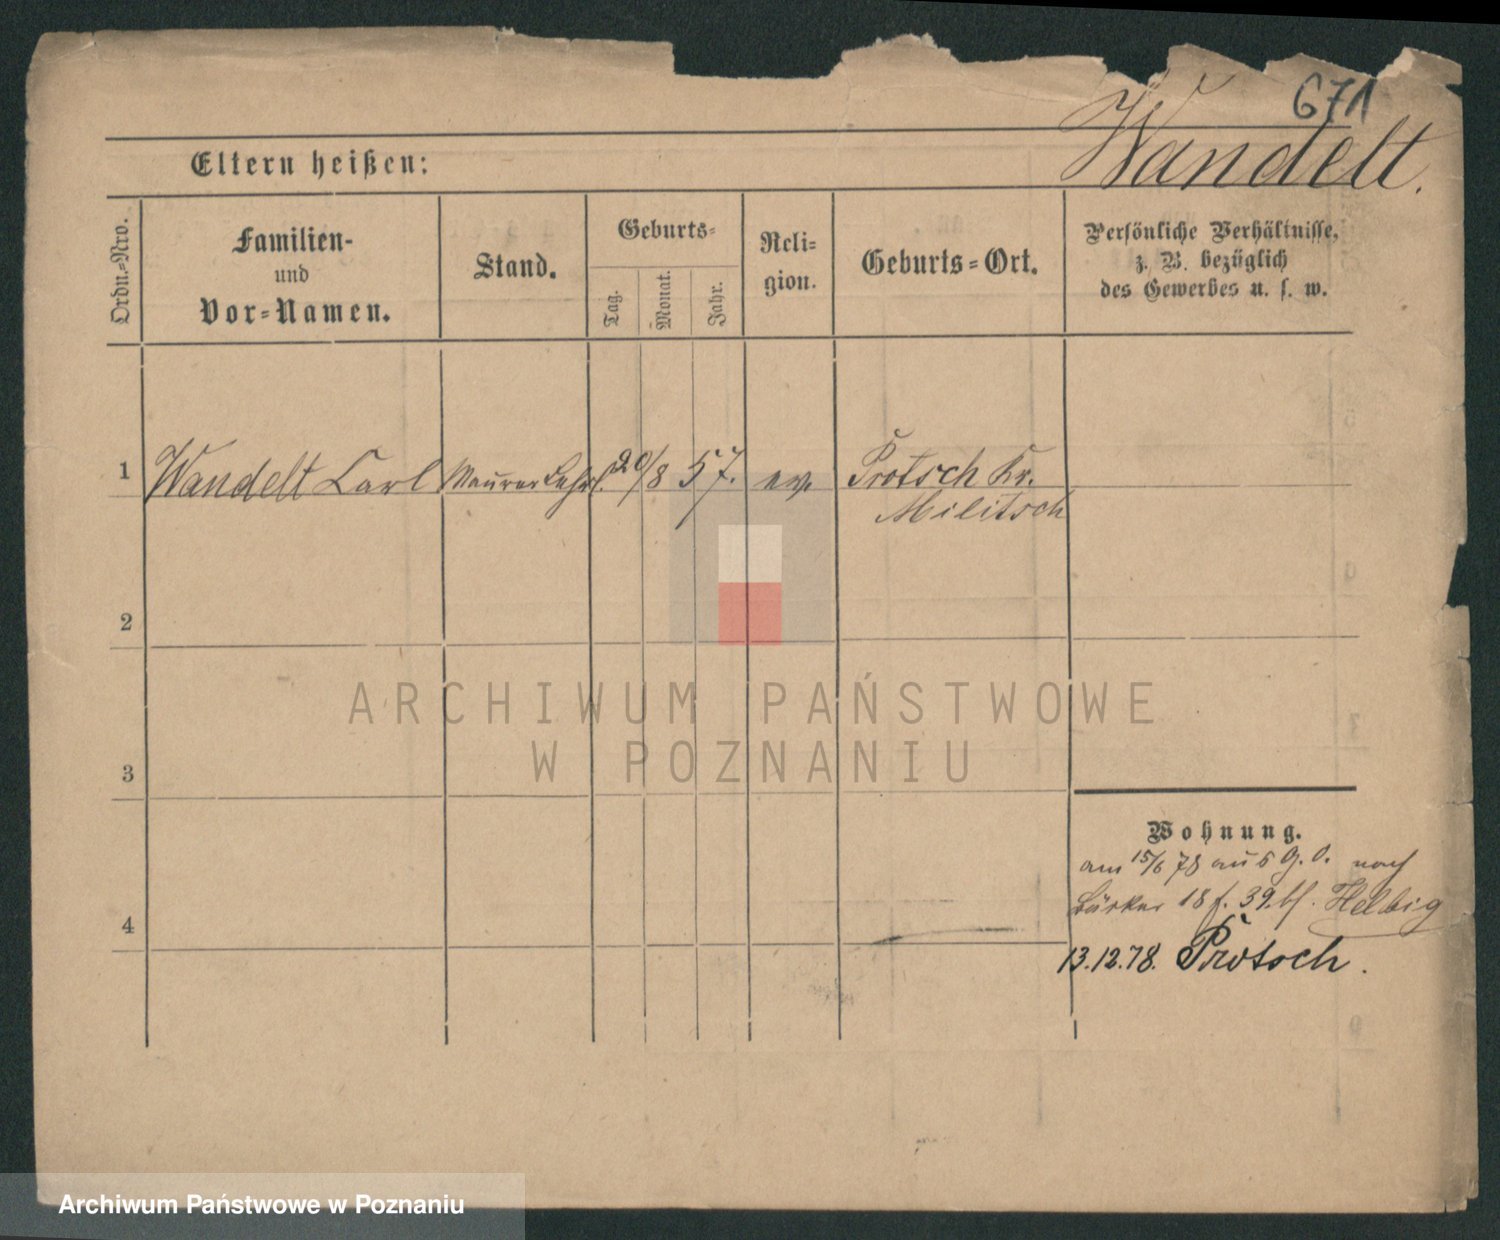 671
Wandelt.
Eltern heißen:
Ordn.-Nro.
Familien-
und
Vor-Namen.
Stand.
Geburts-
Tag.
Monat.
Jahr.
Reli-
gion.
Geburts-Ort.
Persönliche Verhältnisse,
z. B. bezüglich
des Gewerbes u. s. w.
1 Wandelt Carl Maurer Lehrl. 20/8 57. ev. Protsch Kr.
Militsch
2
ARCHIWUM PAŃSTWOWE
W POZNANIU
3
Wohnung.
am 15/6 78 aus G. O. nach
18 39. Helbig
4
13.12.78. Protsch.
Archiwum Państwowe w Poznaniu